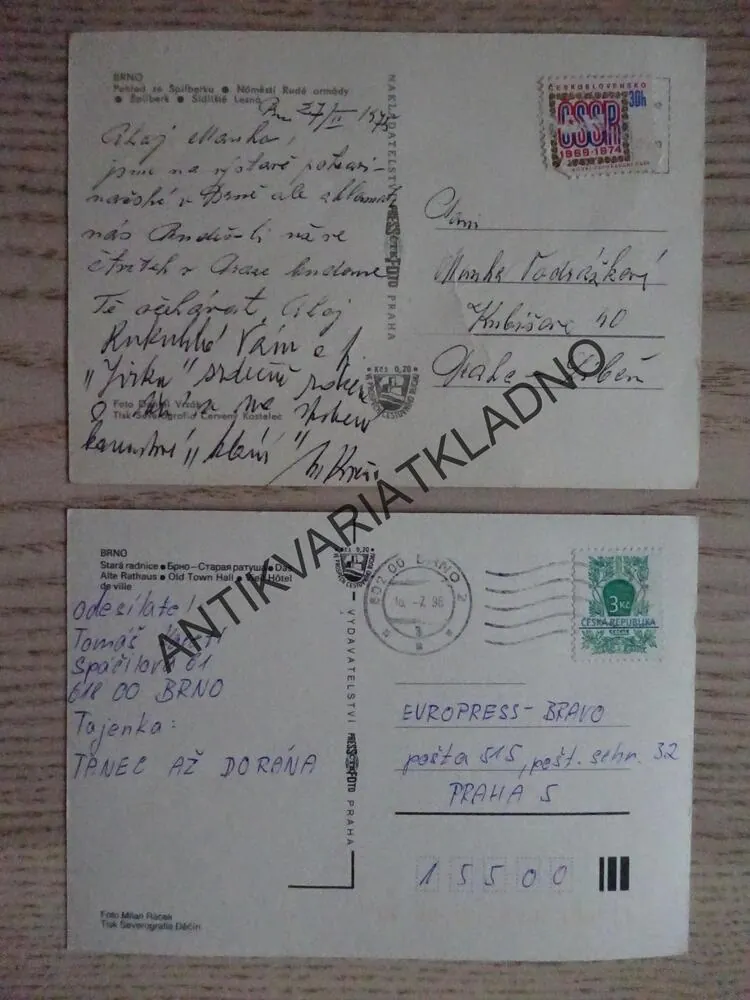 BRNO
Pohled ze Špilberku ● Náměstí Rudé armády
● Špilberk ● Sídliště Lesná
27/II 1975
Ahoj Manko,
jsme na výstavě
v Brně ale
nás
čtvrtek v Praze budeme
Tě očkávat. Ahoj
Rukulíbá Vám a
„Jirka“ srdečně
„klání“
Foto
Tisk Severografia Červený Kostelec
NAKLADATELSTVÍ PRESSFOTO PRAHA
Kčs 0,20
VE PROSPĚCH CESTOVNÍHO RUCHU
ČESKOSLOVENSKO
30h
ČSSR
1969-1974
Paní
Manka Vodrážková
Kubišova 40
Praha - Libeň
ANTIKVARIATKLADNO
BRNO
Stará radnice ● Брно—Старая ратуша ● Das
Alte Rathaus ● Old Town Hall ● Vieil Hôtel
de ville
odesílatel
Tomáš
Spáčilova 01
618 00 BRNO
Tajenka:
TANEC AŽ DO RÁNA
Foto Milan Ráček
Tisk Severografia Děčín
Kčs 0,20
VE PROSPĚCH CESTOVNÍHO RUCHU
VYDAVATELSTVÍ PRESSFOTO PRAHA
602 00 BRNO 2
16. -7. 96
3
3 Kč
ČESKÁ REPUBLIKA
EUROPRESS - BRAVO
pošta 515, pošt. schr. 32
PRAHA 5
15500